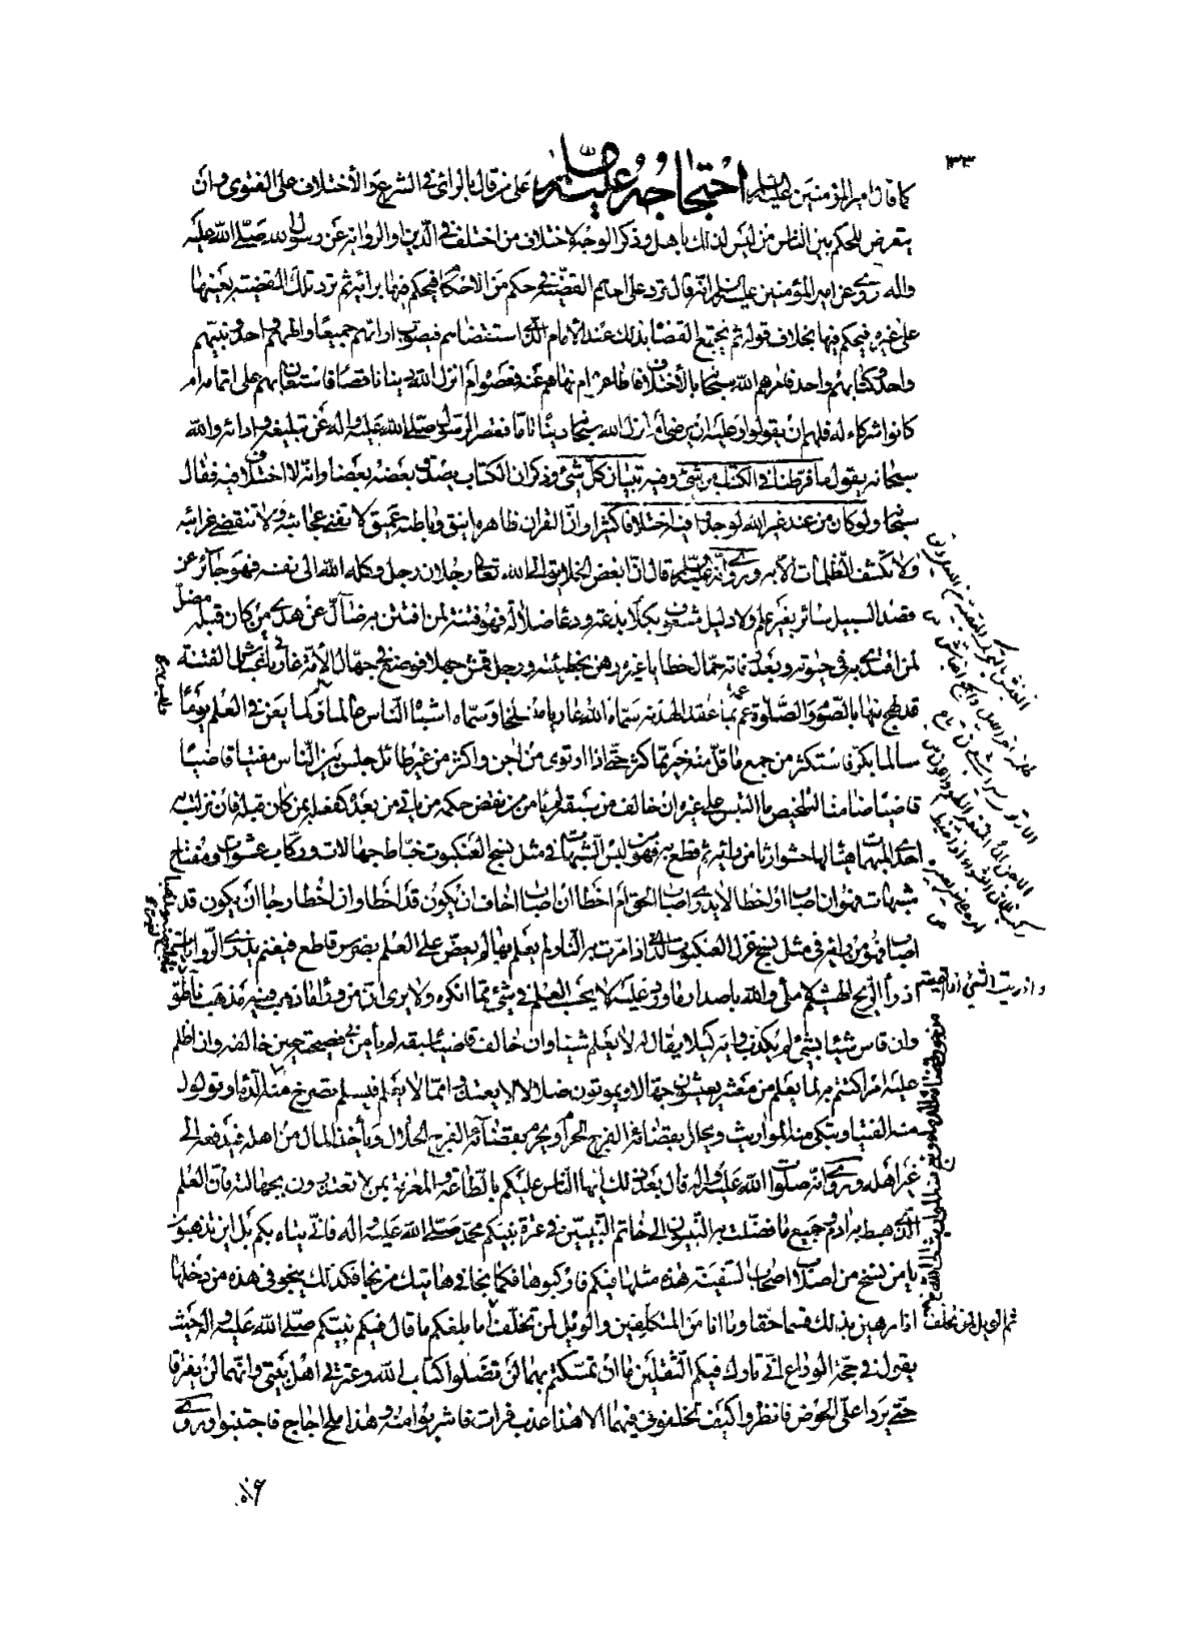 ٣٣
كما قال امير المؤمنين عليه السلام احتجاجه عليه السلام على من قال بالرأي في الشرع والأختلاف في الفتوى وان
يتعرض للحكم بين الناس من ليس لذلك باهل وذكر الوجه لاختلاف من اختلف في الدين والرواية عن رسول الله صلى الله عليه
واله روي عن امير المؤمنين عليه السلام انه قال ترد على احدهم القضية في حكم من الاحكام فيحكم فيها برأيه ثم ترد تلك القضية بعينها
على غيره فيحكم فيها بخلاف قوله ثم يجتمع القضاة بذلك عند الامام الذي استقضاهم فيصوب اراءهم جميعا والههم واحد ونبيهم
واحد وكتابهم واحد فامرهم الله سبحانه بالأختلاف فاطاعوه ام نهاهم عنه فعصوه ام انزل الله دينا ناقصا فاستعان بهم على اتمامه ام
كانوا شركاء له فلهم ان يقولوا وعليه ان يرضى ام انزل الله سبحانه دينا تاما فقصر الرسول صلى الله عليه واله عن تبليغه وادائه والله
سبحانه يقول ما فرطنا في الكتاب من شئ وفيه تبيان كل شئ وذكر ان الكتاب يصدق بعضه بعضا وانه لا اختلاف فيه فقال
سبحانه ولو كان من عند غير الله لوجدوا فيه اختلافا كثيرا وان القران ظاهره انيق وباطنه عميق لا تفنى عجائبه ولا تنقضي غرائبه
ولا تكشف الظلمات الا به وروي انه عليه السلام قال ان ابغض الخلايق الى الله تعالى رجلان رجل وكله الله الى نفسه فهو جائر عن
قصد السبيل سائر بغير علم ولا دليل مشغوف بكلام بدعة ودعاء ضلالة فهو فتنة لمن افتتن به ضال عن هدى من كان قبله مضل
لمن اقتدى به في حيوته وبعد وفاته حمال خطايا غيره رهن بخطيئته ورجل قمش جهلا فوضع في جهال الأمة غار في اغباش الفتنة
قد لهج منها بالصوم والصلوة عم بما في عقد الهدنة سماه الله عاريا منسلخا وسماه اشباه الناس عالما ولما يغن في العلم يوما
سالما بكر فاستكثر من جمع ما قل منه خير مما كثر حتى اذا ارتوى من اجن واكثر من غير طائل جلس بين الناس مفتيا قاضيا
قاضيا ضامنا لتلخيص ما التبس على غيره ان خالف من سبقه لم يأمن من نقض حكمه من يأتي من بعده كفعله بمن كان قبله فان نزلت به
احدى المبهمات هيألها حشوا رثا من رأيه ثم قطع به فهو من لبس الشبهات في مثل نسج العنكبوت خباط جهالات وركاب عشوات ومفتاح
شبهات فهو ان اصاب او اخطأ لا يدري اصاب الحق ام اخطأ ان اصاب خاف ان يكون قد اخطأ وان اخطأ رجا ان يكون قد
اصاب فهو من رأيه في مثل نسج غزل العنكبوت الذي اذا مرت به النار لم يعلم بها لم يعض على العلم بضرس قاطع فيغنم يذري الروايات
اذراء الريح الهشيم لا ملئ والله باصدار ما ورد عليه لا يحسب العلم في شئ مما انكره ولا يرى ان من وراء ما ذهب فيه مذهب ناطق
وان قاس شيئا بشئ لم يكذب رأيه كيلا يقال له لا يعلم شيئا وان خالف قاضيا سبقه لم يأمن فضيحته حين خالفه وان اظلم
عليه امر اكتتم به لما يعلم من معشر يعيشون جهالا ويموتون ضلالا لا يعتذر مما لا يعلم فيسلم تصرخ منه الدماء وتولول
منه الفتيا وتبكي منه المواريث ويحلل بقضائه الفرج الحرام ويحرم بقضائه الفرج الحلال ويأخذ المال من اهله فيدفعه الى
غير اهله وروي انه صلوات الله عليه واله قال بعد ذلك ايها الناس عليكم بالطاعة والمعرفة بمن لا تعتذرون بجهالته فان العلم
الذي هبط به ادم وجميع ما فضلت به النبيون الى خاتم النبيين في عترة نبيكم محمد صلى الله عليه واله فانى يتاه بكم بل اين تذهبون
يا من نسخ من اصلاب اصحاب السفينة هذه مثلها فيكم فاركبوها فكما نجا في هاتيك من نجا فكذلك ينجو في هذه من دخلها
انا رهين بذلك قسما حقا وما انا من المتكلفين والويل لمن تخلف ثم الويل لمن تخلف اما بلغكم ما قال فيكم نبيكم صلى الله عليه واله حيث
يقول في حجة الوداع اني تارك فيكم الثقلين ما ان تمسكتم بهما لن تضلوا كتاب الله وعترتي اهل بيتي وانهما لن يفترقا
حتى يردا علي الحوض فانظروا كيف تخلفوني فيهما الا هذا عذب فرات فاشربوا منه وهذا ملح اجاج فاجتنبوا وروي